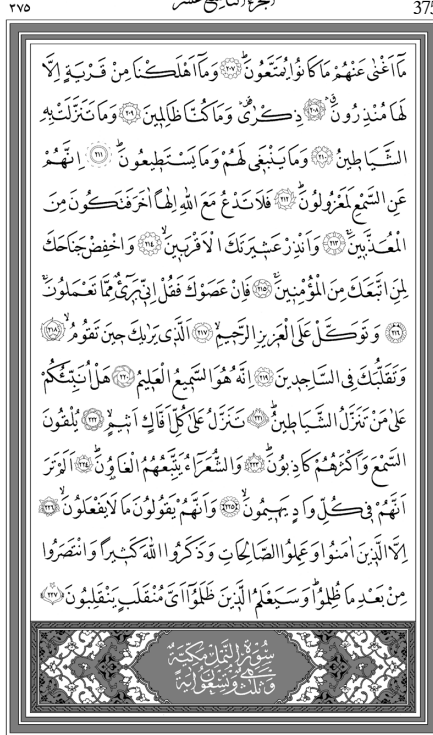 ٣٧٥ الجزء التاسع عشر 375
مَٓا اَغْنٰى عَنْهُمْ مَا كَانُوا يُمَتَّعُونَۜ ﴿٢٠٧﴾ وَمَٓا اَهْلَكْنَا مِنْ قَرْيَةٍ اِلَّا
لَهَا مُنْذِرُونَۗ ﴿٢٠٨﴾ ذِكْرٰىۛ وَمَا كُنَّا ظَالِمِينَ ﴿٢٠٩﴾ وَمَا تَنَزَّلَتْ بِهِ
الشَّيَاطِينُ ﴿٢١٠﴾ وَمَا يَنْبَغِى لَهُمْ وَمَا يَسْتَطِيعُونَۜ ﴿٢١١﴾ اِنَّهُمْ
عَنِ السَّمْعِ لَمَعْزُولُونَۜ ﴿٢١٢﴾ فَلَا تَدْعُ مَعَ اللّٰهِ اِلٰهًا اٰخَرَ فَتَكُونَ مِنَ
الْمُعَذَّبِينَۚ ﴿٢١٣﴾ وَاَنْذِرْ عَشِيرَتَكَ الْاَقْرَبِينَۙ ﴿٢١٤﴾ وَاخْفِضْ جَنَاحَكَ
لِمَنِ اتَّبَعَكَ مِنَ الْمُؤْمِنِينَۚ ﴿٢١٥﴾ فَاِنْ عَصَوْكَ فَقُلْ اِنِّى بَرِٓىءٌ مِمَّا تَعْمَلُونَۚ
﴿٢١٦﴾ وَتَوَكَّلْ عَلَى الْعَزِيزِ الرَّحِيمِۙ ﴿٢١٧﴾ اَلَّذِى يَرٰيكَ حِينَ تَقُومُۙ ﴿٢١٨﴾
وَتَقَلُّبَكَ فِى السَّاجِدِينَ ﴿٢١٩﴾ اِنَّهُ هُوَ السَّمِيعُ الْعَلِيمُ ﴿٢٢٠﴾ هَلْ اُنَبِّئُكُمْ
عَلٰى مَنْ تَنَزَّلُ الشَّيَاطِينُۜ ﴿٢٢١﴾ تَنَزَّلُ عَلٰى كُلِّ اَفَّاكٍ اَثِيمٍۙ ﴿٢٢٢﴾ يُلْقُونَ
السَّمْعَ وَاَكْثَرُهُمْ كَاذِبُونَۜ ﴿٢٢٣﴾ وَالشُّعَرَٓاءُ يَتَّبِعُهُمُ الْغَاوُ۫نَۜ ﴿٢٢٤﴾ اَلَمْ تَرَ
اَنَّهُمْ فِى كُلِّ وَادٍ يَهِيمُونَۙ ﴿٢٢٥﴾ وَاَنَّهُمْ يَقُولُونَ مَا لَا يَفْعَلُونَۙ ﴿٢٢٦﴾
اِلَّا الَّذِينَ اٰمَنُوا وَعَمِلُوا الصَّالِحَاتِ وَذَكَرُوا اللّٰهَ كَثِيرًا وَانْتَصَرُوا
مِنْ بَعْدِ مَا ظُلِمُواۜ وَسَيَعْلَمُ الَّذِينَ ظَلَمُٓوا اَىَّ مُنْقَلَبٍ يَنْقَلِبُونَ ﴿٢٢٧﴾
سُورَةُ النَّمْلِ مَكِّيَّةٌ
وَهِىَ ثَلٰثٌ وَتِسْعُونَ اٰيَةً